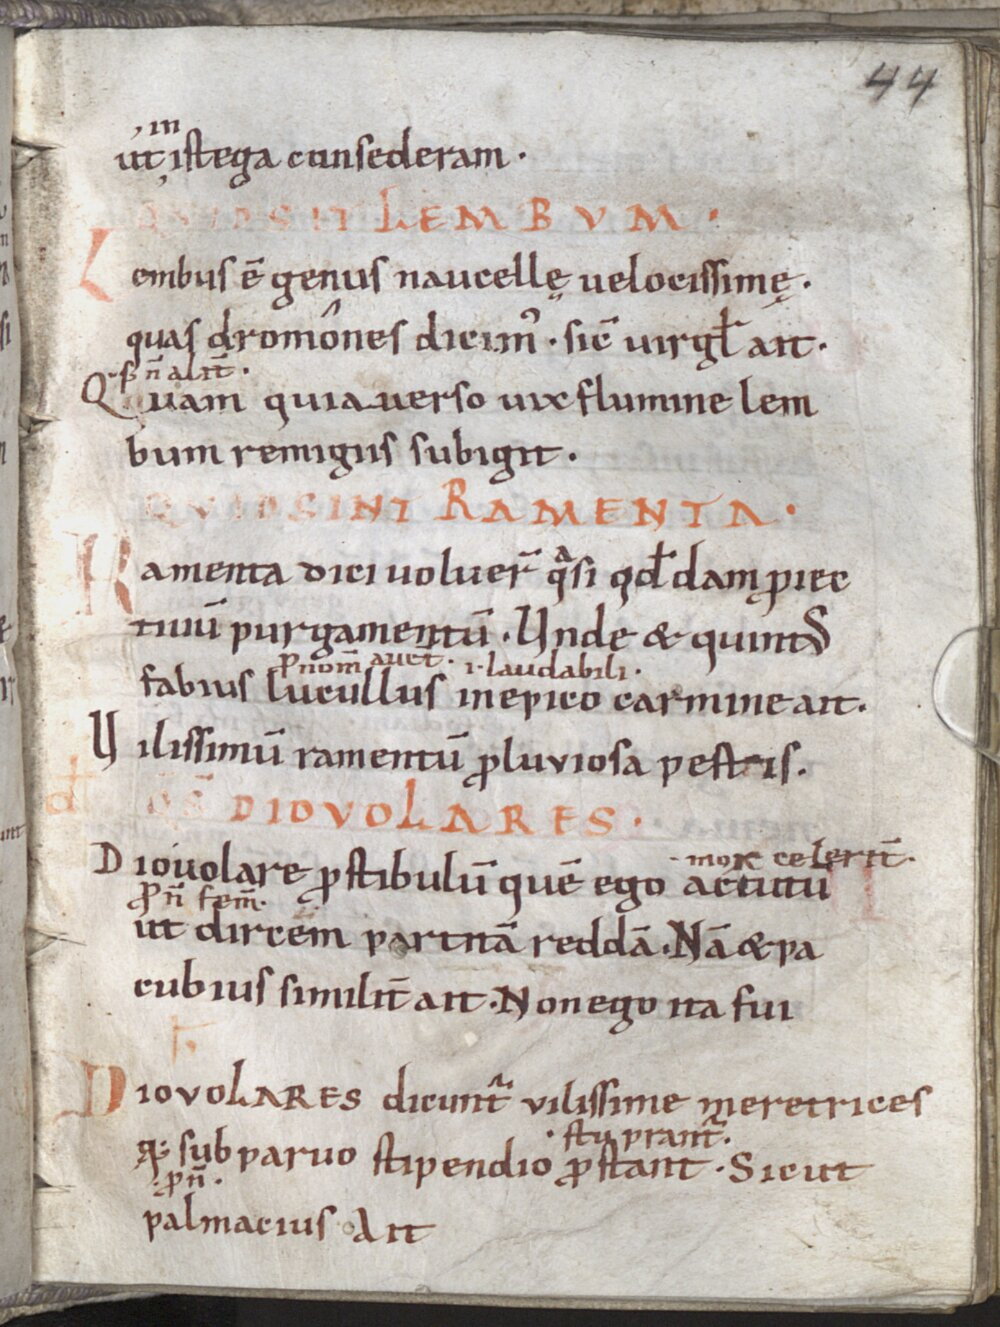 44
in
ut istega consederam ·
QVID SIT LEMBVM ·
Lembus ē genus naucellę uelocissimę ·
quas dromônes dicim᾽ · sic̄ uirgł ait ·
ꝑ n̄ alit̄ ·
Quam quia uerso uix flumine lem
bum remigiis subigit ·
QVID SINT RAMENTA ·
Ramenta dici uoluer̄ q̄si qđdam ꝓiec
tiuū purgamentū · Unde & quint᾽
ꝓnom̄ auet̄ · i · laudabili ·
fabius lucullus in epico carmine ait ·
Uilissimū ramentū ꝓluuiosa pestris ·
đ QS̄ DIOVOLARES ·
mox celerit̄ ·
Diouolare ꝓstibulū quē ego actutū
ꝓn̄ fem̄ ·
ut dircem partnā reddā · Nā & pa
cubius similit̄ ait · Non ego ita fui
h̄ ·
DIOVOLARES dicunt᷑ uilissime meretrices
· stuprant̄ ·
q̄ · sub paruo stipendio ꝓstant · Sicut
· ꝓn̄ ·
palmacius Ait